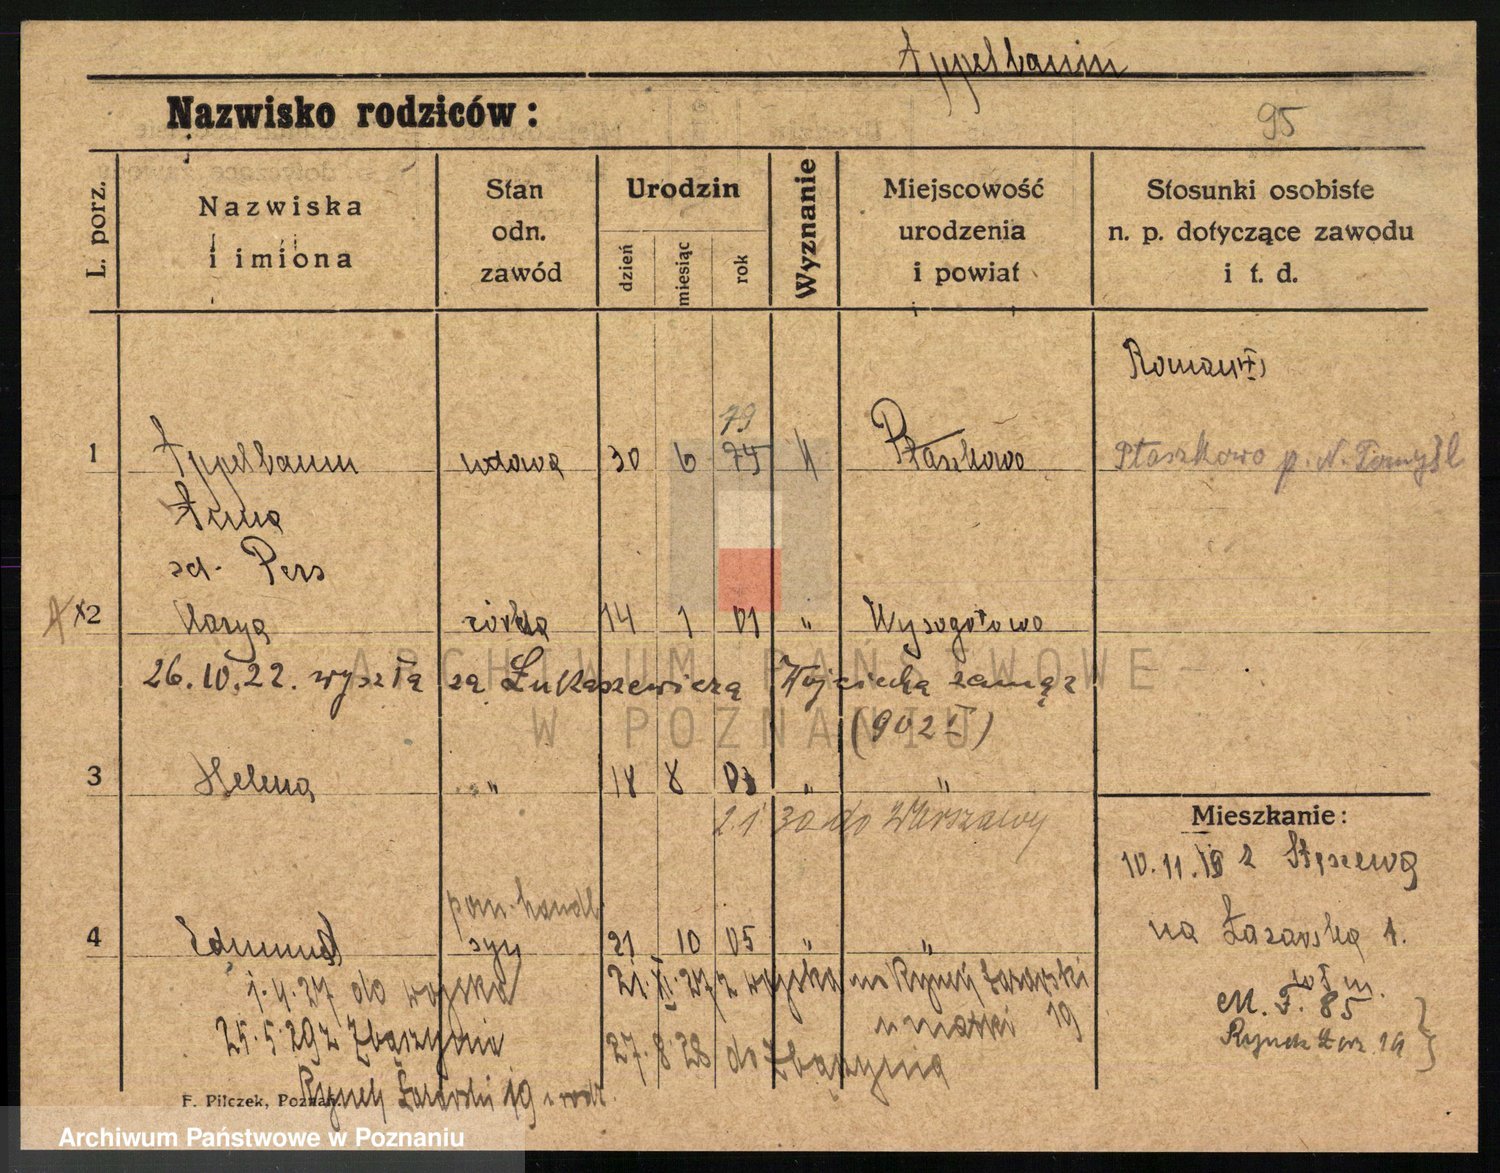 Appelbaum
Nazwisko rodziców:
95
L. porz.
Nazwiska
i imiona
Stan
odn.
zawód
Urodzin
dzień
miesiąc
rok
Wyznanie
Miejscowość
urodzenia
i powiat
Stosunki osobiste
n. p. dotyczące zawodu
i t. d.
Roman
79
1 Appelbaum wdowa 30 6 75 Ptaszkowo Ptaszkowo p. N. Tomyśl
Anna
Pers
x2 Marya córka 14 1 01 " Wysogotowo
26.10.22. wyszła za Łukaszewicza Wojciecha zamąż
(902 )
3 Helena " 18 8 03 " "
do Warszawy
pom. handl.
4 Edmund syn 21 10 05 " "
1.4.27 do wojska 21. 27 z wojska na Rynek Łazarski
25.5.29 z Zbąszynia u matki 19
27.8.28 do Zbąszynia
Rynek Łazarski 19
F. Pilczek, Poznań.
Mieszkanie:
10.11. z Stęszewa
na Łazarską 1.
M. F. 85
Rynek Łaz. 19
ARCHIWUM PAŃSTWOWE
W POZNANIU
Archiwum Państwowe w Poznaniu